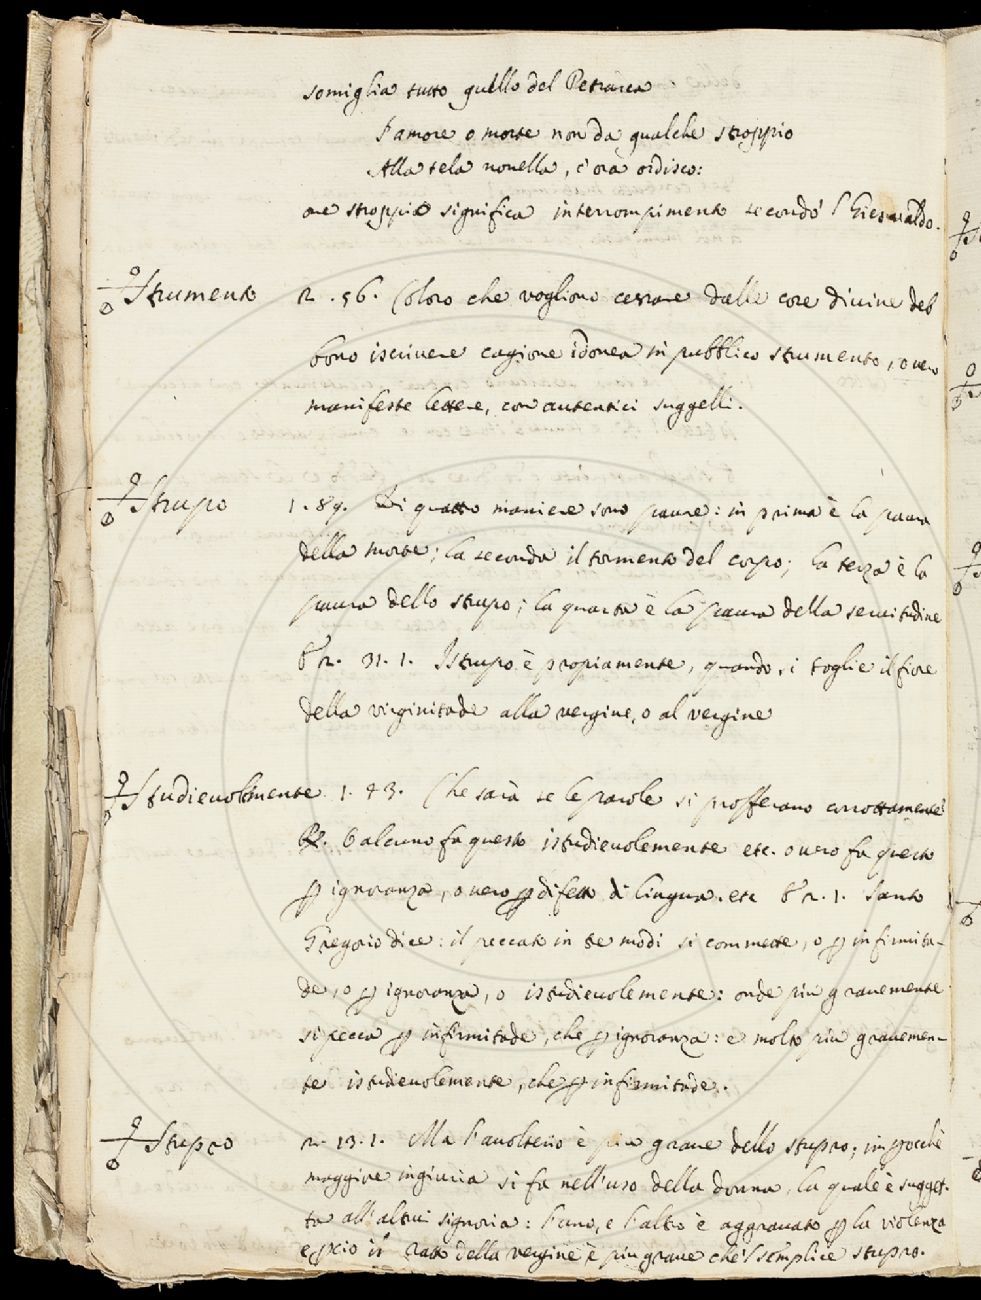 somiglia tutto quello del Petrarca
S'amore o morte non da qualche stroppio
Alla tela novella, c'ora ordisco:
ove stroppio significa interrompimento secondo l' Gesualdo.
Strumento 2. 56. Coloro che vogliono cessare dalle cose divine deb
bono iscrivere cagione idonea in pubblico strumento, overo
manifeste lettere, con autentici suggelli.
Strupo 1. 89. Di quatto maniere sono paure: in prima è la paura
della morte; la seconda il tormento del corpo; la terza è la
paura dello strupo; la quarta è la paura della servitudine
& 2. 31. 1. Istrupo è propiamente, quando si toglie il fiore
della virginitade alla vergine, o al vergine
Studievolemente 1. 43. Che sarà se le parole si profferano corrottamente
R. O alcuno fa questo istudievolemente etc. overo fa questo
p ignoranza, overo p difetto di lingua. etc & 2. 1. Santo
Gregorio dice: il peccato in tre modi si commette, o p infirmita-
de, o p ignoranza, o istudievolemente: onde piu gravemente
si pecca p infirmitade, che p ignoranza: e molto piu gravemen-
te istudievolemente, che p infirmitade.
Strupro 2. 13. 1. Ma l'avolterio è piu grave dello strupro; impocchè
maggiore ingiuria si fa nell'uso della donna, la quale è sugget-
ta all'altrui signoria: l'uno, e l'altro è aggravato p la violenza
e pcio il ratto della vergine è piu grave che'l semplice strupro.